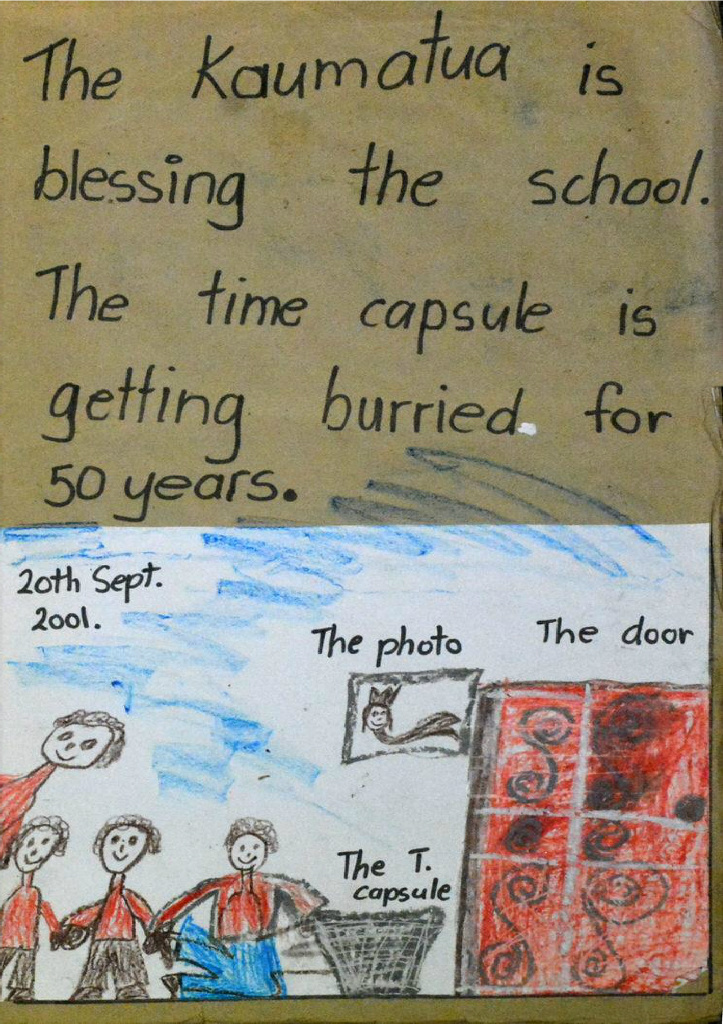 The Kaumatua is
blessing the school.
The time capsule is
getting burried for
50 years.
20th Sept.
2001.
The photo
The door
The T.
capsule